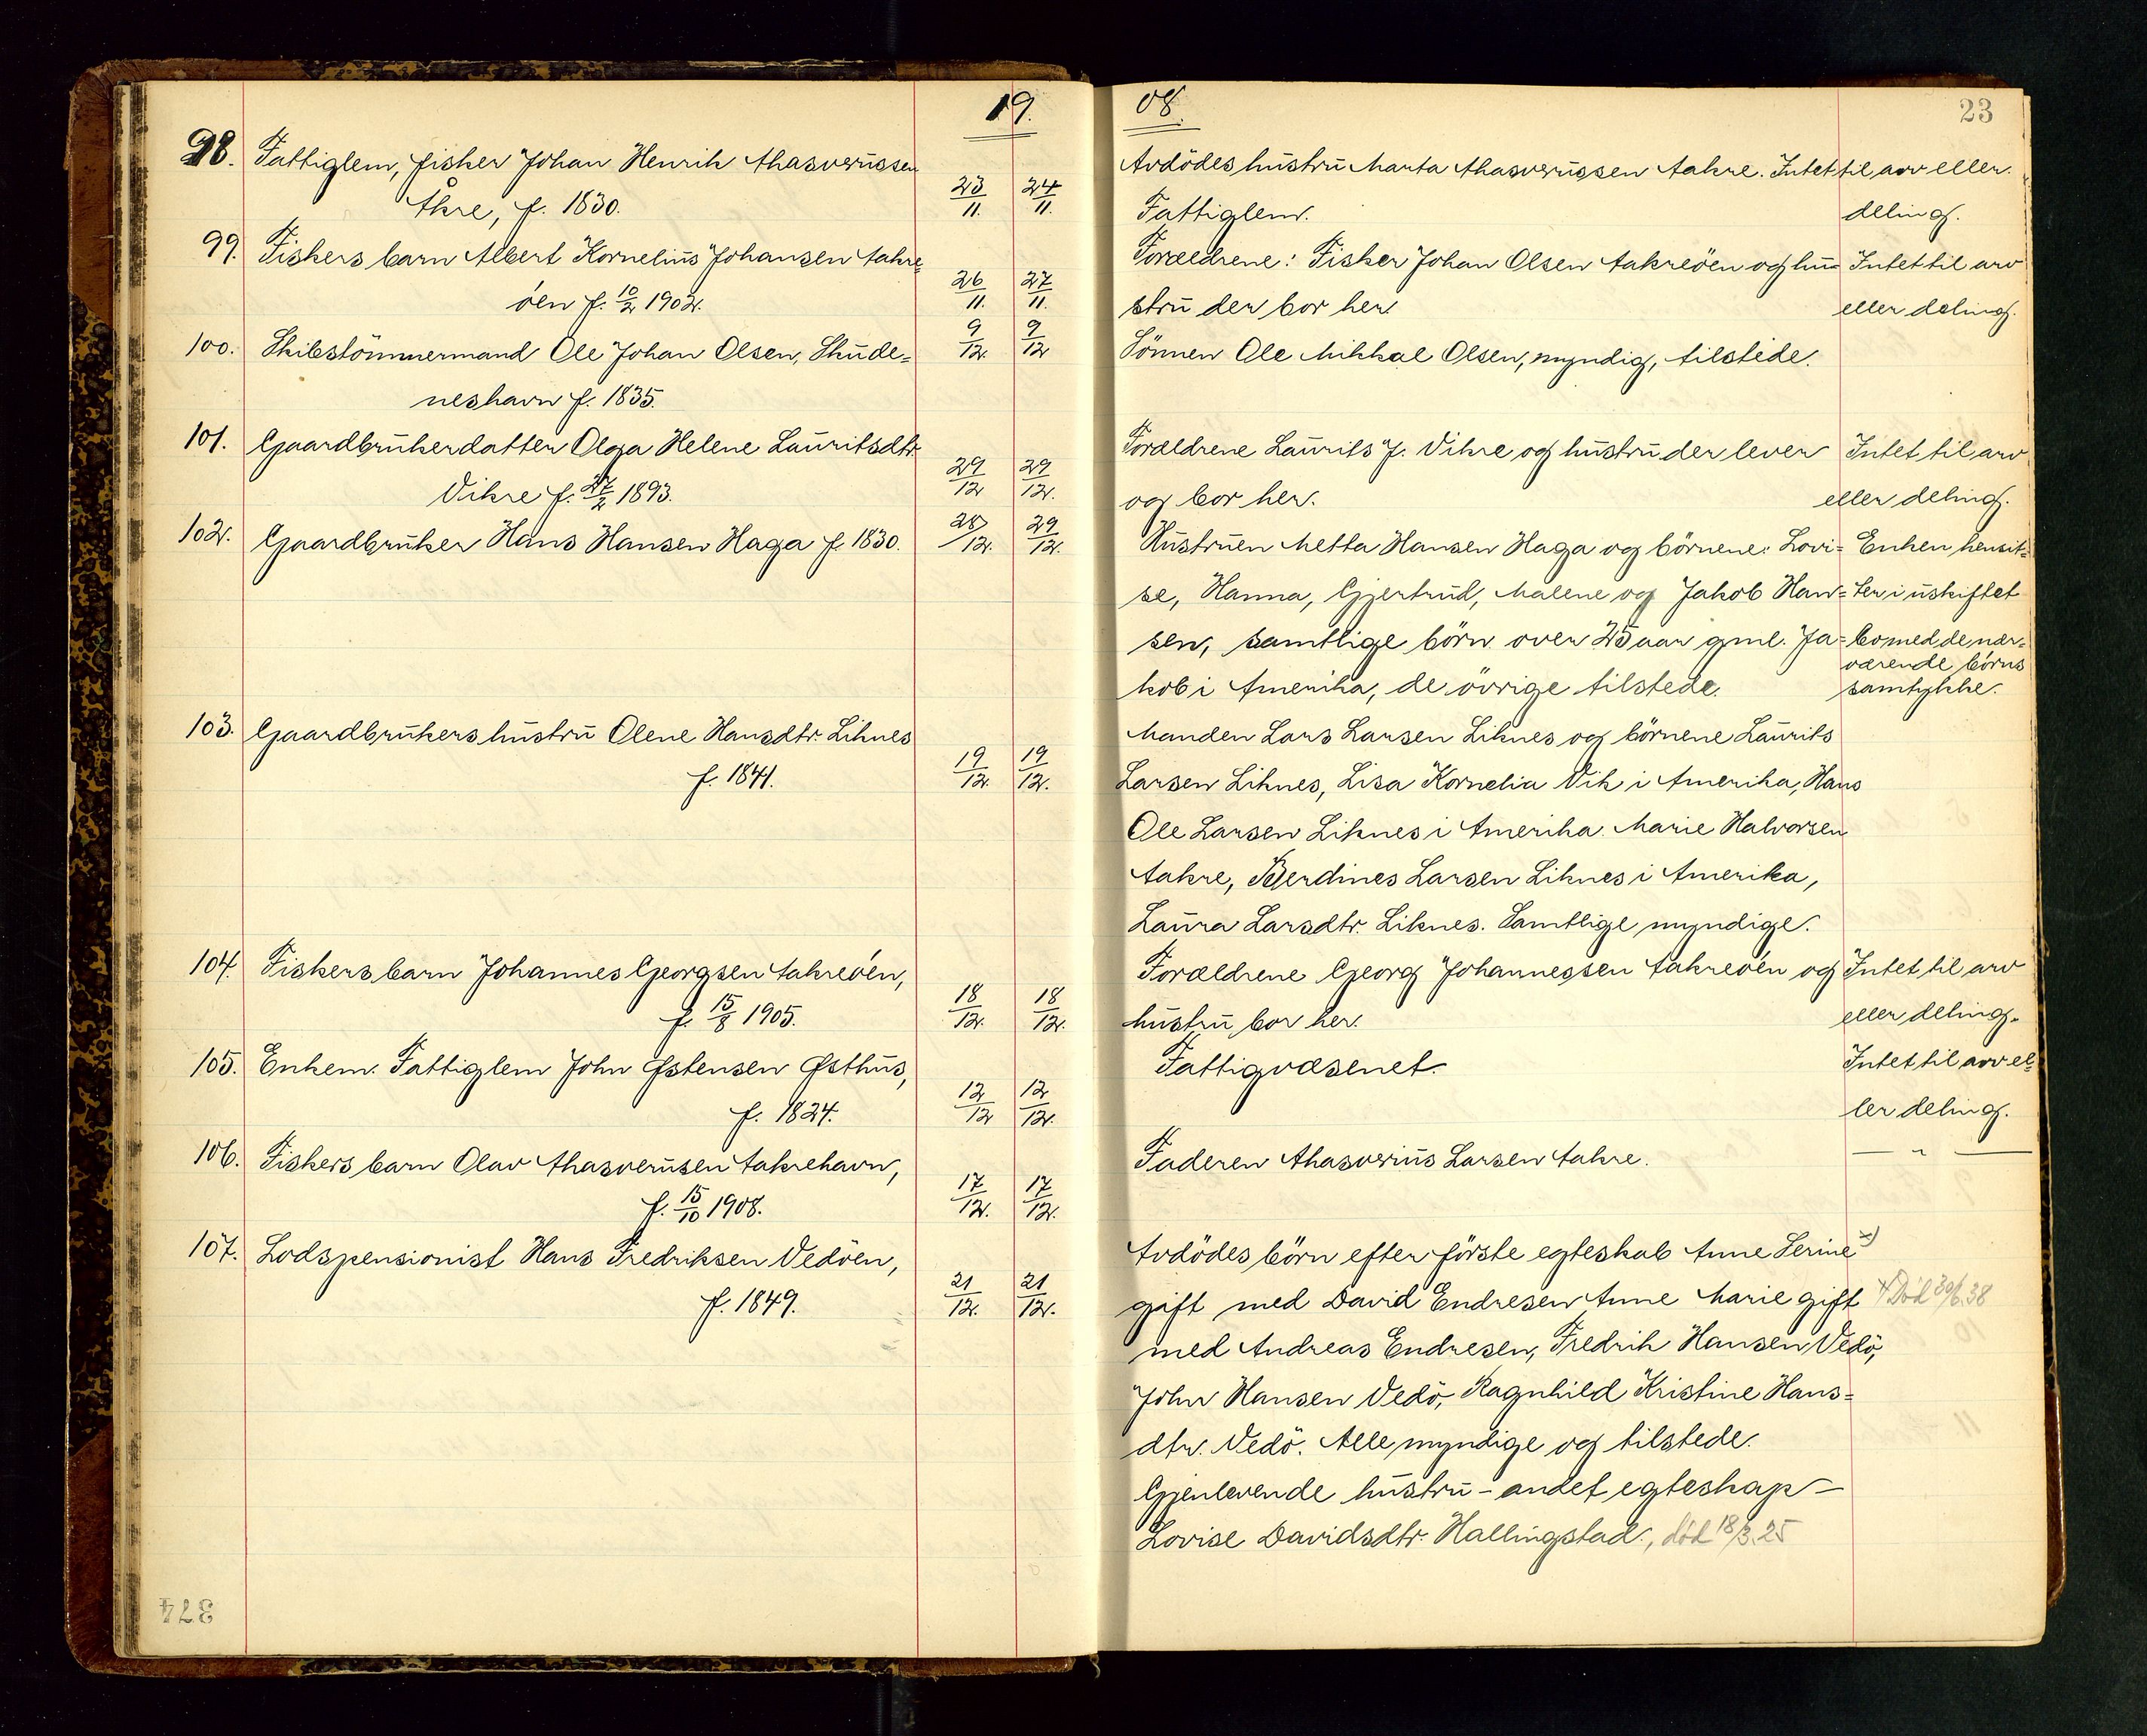 19.
98. Fattiglem, fisker Johan Henrik Ahasverussen
Åkre, f. 1830. 23/11. 24/11.
99. Fiskers barn Albert Kornelius Johansen Aakre-
öen f. 10/2 1902. 26/11. 27/11.
100. Skibstömmermand Ole Johan Olsen, Skude= 9/12. 9/12
neshavn f. 1835.
101. Gaardbrukerdatter Olga Helene Lauritsdtr.
Vikre f. 27/2 1893. 29/12 29/12.
102. Gaardbruker Hans Hansen Haga f. 1830. 28/12. 29/12.
103. Gaardbrukers hustru Olene Hansdtr. Liknes
f. 1841. 19/12. 19/12.
104. Fiskers barn Johannes Georgsen Aakreöen,
f. 15/8 1905. 18/12. 18/12.
105. Enkem. Fattiglem John Østensen Østhus,
f. 1824. 12/12 12/12.
106. Fiskers barn Olav Ahasverusen Aakrehavn,
f. 15/10 1908. 17/12. 17/12.
107. Lodspensionist Hans Fredriksen Vedöen,
f. 1849. 21/12. 21/12.
374
08.
23
Avdödes hustru Marta Ahasverussen Aakre. Intet til arv eller
Fattiglem. deling.
Forældrene: Fisker Johan Olsen Aakreöen og hu= Intet til arv
stru der bor her. eller deling.
Sönnen Ole Mikkal Olsen, myndig, tilstede.
Forældrene Laurits J. Vikre og hustru der lever Intet til arv
og bor her. eller deling.
Hustruen Metta Hansen Haga og börnene: Lovi= Enken hensit=
se, Hanna, Gjertrud, Malene og Jakob Han= ter i uskiftet
sen, samtlige börn over 25 aar gml. Ja= bo med de nær=
værende börns
kob i Amerika, de övrige tilstede. samtykke.
Manden Lars Larsen Liknes og börnene Laurits
Larsen Liknes, Lisa Kornelia Vik i Amerika, Hans
Ole Larsen Liknes i Amerika. Marie Halvorsen
Aakre, Berdines Larsen Liknes i Amerika,
Laura Larsdtr. Liknes. Samtlige myndige.
Forældrene Georg Johannessen Aakreöen og Intet til arv
hustru bor her. eller deling.
Fattigvæsenet. Intet til arv el=
ler deling.
Faderen Ahasverius Larsen Aakre. — " —
Avdödes börn efter förste egteskab Anne Serine x)
gift med David Endresen, Anne Marie gift x Död 30/6.38
med Andreas Endresen, Fredrik Hansen Vedö,
John Hansen Vedö, Ragnhild Kristine Hans=
dtr. Vedö. Alle myndige og tilstede.
Gjenlevende hustru – andet egteskap –
Lovise Davidsdtr. Hallingstad., död 18/3.25